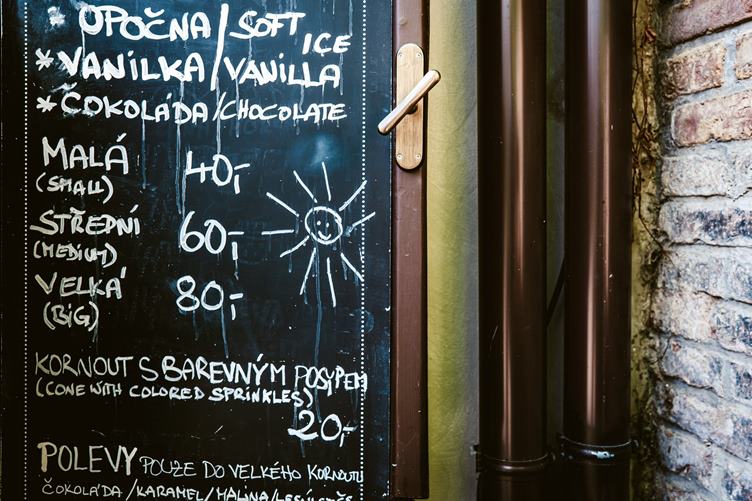 OPOČNA/SOFT ICE
* VANILKA/VANILLA
* ČOKOLÁDA/CHOCOLATE
MALÁ 40,-
(SMALL)
STŘEDNÍ 60,-
(MEDIUM)
VELKÁ 80,-
(BIG)
KORNOUT S BAREVNÝM POSYPEM
(CONE WITH COLORED SPRINKLES)
20,-
POLEVY POUZE DO VELKÉHO KORNOUTU
ČOKOLÁDA/KARAMEL/MALINA/